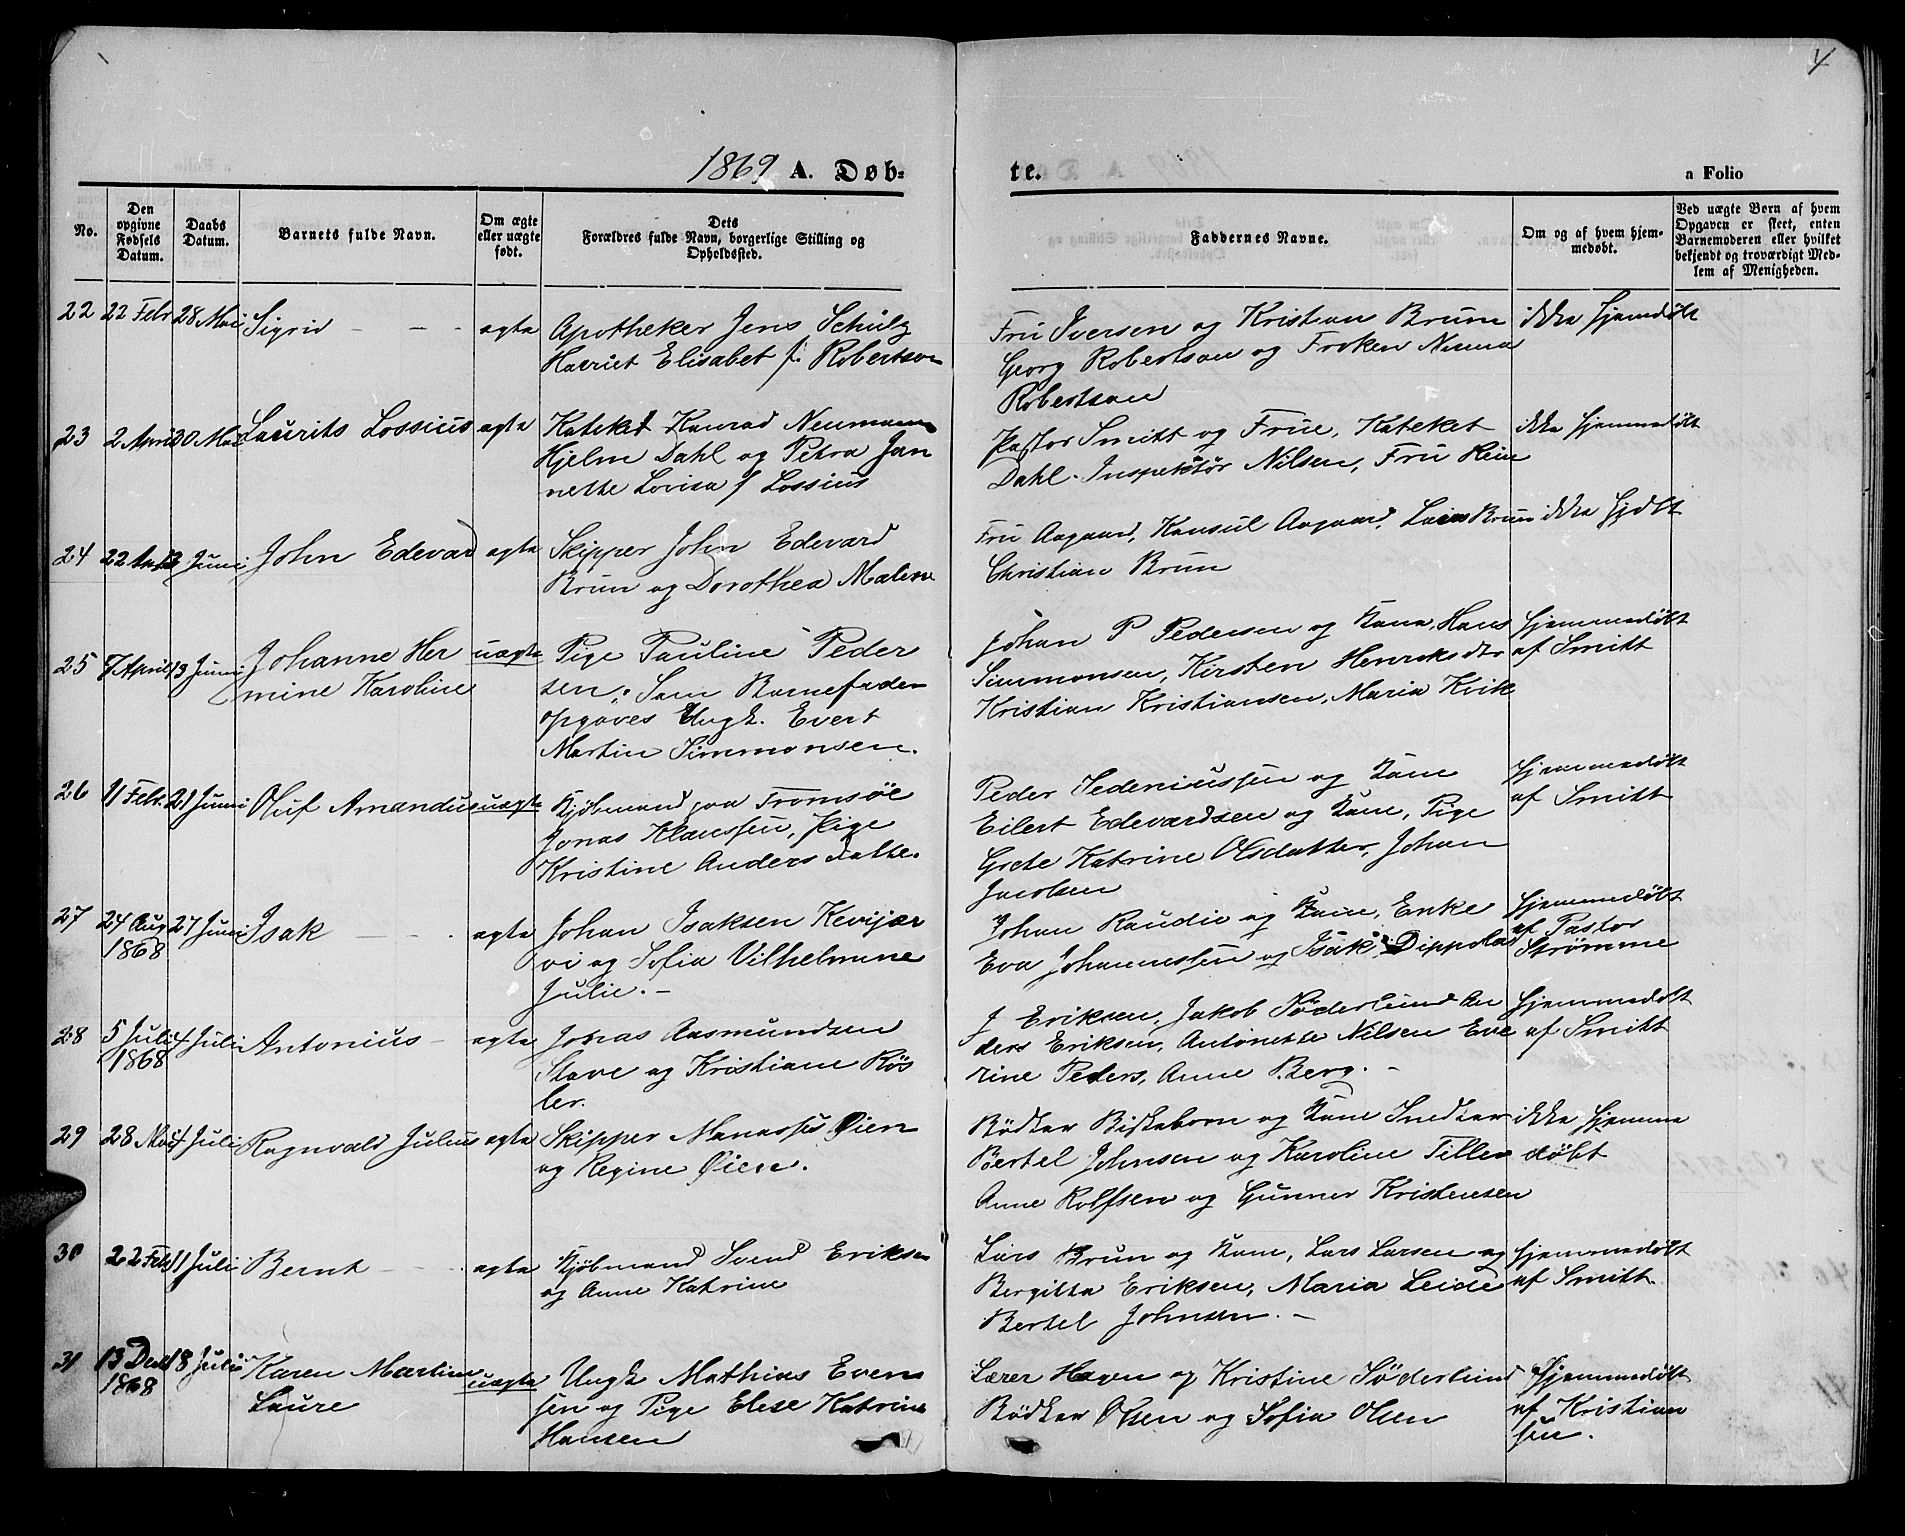 4
1869 A. Døb=
te.
a Folio
No.
Den opgivne Fødsels Datum.
Daabs Datum.
Barnets fulde Navn.
Om ægte eller uægte født.
Dets Forældres fulde Navn, borgerlige Stilling og Opholdssted.
Faddernes Navne.
Om og af hvem hjemmedøbt.
Ved uægte Børn af hvem Opgaven er skeet, enten Barnemoderen eller hvilket bekjendt og troværdigt Medlem af Menigheden.
22 22 Febr 28 Mai Sigrid - - - ægte
Apotheker Jens Schulz
Harriet Elisabet f. Robertson
Fru Iversen og Kristian Brun
Georg Robertson og Frøken
Robertson
ikke hjemdøbt
23 2 April 20 Mai Laurits Lossius ægte
Kateket Konrad Neumann
Hjelm Dahl og Petra Jan
nette Lovisa f Lossius
Pastor Smitt og Frue, Kateket
Dahl. Inspektør Nilsen, Fru
ikke hjemmedøbt
24 22 Juni John Edevard ægte
Skipper John Edevard
Brun og Dorothea Malene
Fru Aagaard, Konsul Aagaard, Lars Brun
Christian Brun
ikke hjdbt
25 7 April 13 Juni Johanne Her
mine Karoline
uægte
Pige Pauline Peder
sen, Som Barnefader
opgaves Ungk. Evert
Martin Simmonsen.
Johan P Pedersen og Kone, Hans
Simmonsen, Kirsten Henriksdtr
Kristian Kristiansen, Maria Kvik
hjemmedøbt
af Smitt
26 11 Febr. 21 Juni Oluf Amandus uægte
Kjøbmand paa Tromsøe
Jonas Klaussen, Pige
Kristine Andersdatte.
Peder og Kone
Eilert Edevardsen og Kone, Pige
Grete Katrine Olsdatter, Johan
Jacobsen
hjemmedøbt
af Smitt
27 24 Aug 1868 27 Juni Isak - - - ægte
Johan Isaksen Kevijær
vi og Sofia Vilhelmine
Julie. -
Johan Raudie og Kone, Enke
Eva Johannessen og Isak Dippolas
hjemmedøbt
af Pastor
Strømme
28 5 Juli 1868 4 Juli Antonius - ægte
Jonas Aasmundsen
Slave og Kristiane Rös
ler.
J Eriksen, Jakob Söderlund An
ders Eriksen, Antonette Nilsen Eve
rine Peders, Anne Berg. -
hjemmedøbt
af Smitt
29 28 Mai 4 Juli Ragnvald Julius ægte
Skipper Manasses Øien
og Regine Øien.
Bødker Biskaborn og Kone Snedker
Bertel Johnsen og Karoline Tiller
Anne Rolfsen og Gunner Kristensen
ikke hjemme
døbt
30 22 Feb 11 Juli Bernt - - - ægte
Kjøbmand Svend Eriksen
og Anne Katrine
Lars Brun og Kone, Lars Larsen og
Bergitta Eriksen, Maria Leide
Bertel Johnsen. -
hjemmedøbt
af Smitt
31 13 Dec 1868 18 Juli Karen Martine
Laure
uægte
Ungk Mathias Even
sen og Pige Elese Katrine
Hansen
Lærer Haven og Kristine Söderlund
Bödker Olsen og Sofia Olsen
Hjemmedøbt
af Kristian
sen.